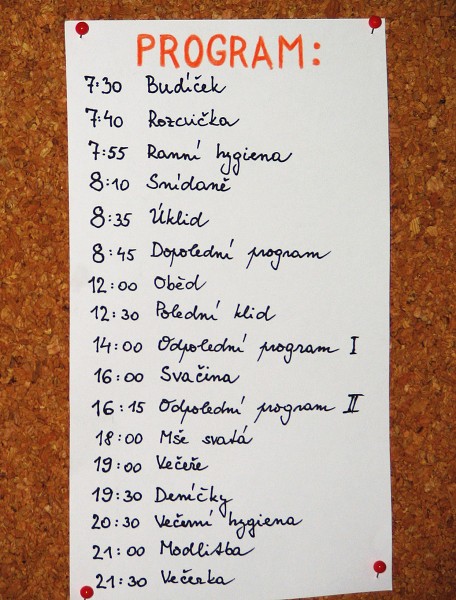 PROGRAM:
7:30 Budíček
7:40 Rozcvička
7:55 Ranní hygiena
8:10 Snídaně
8:35 Úklid
8:45 Dopolední program
12:00 Oběd
12:30 Polední klid
14:00 Odpolední program I
16:00 Svačina
16:15 Odpolední program II
18:00 Mše svatá
19:00 Večeře
19:30 Deníčky
20:30 Večerní hygiena
21:00 Modlitba
21:30 Večerka